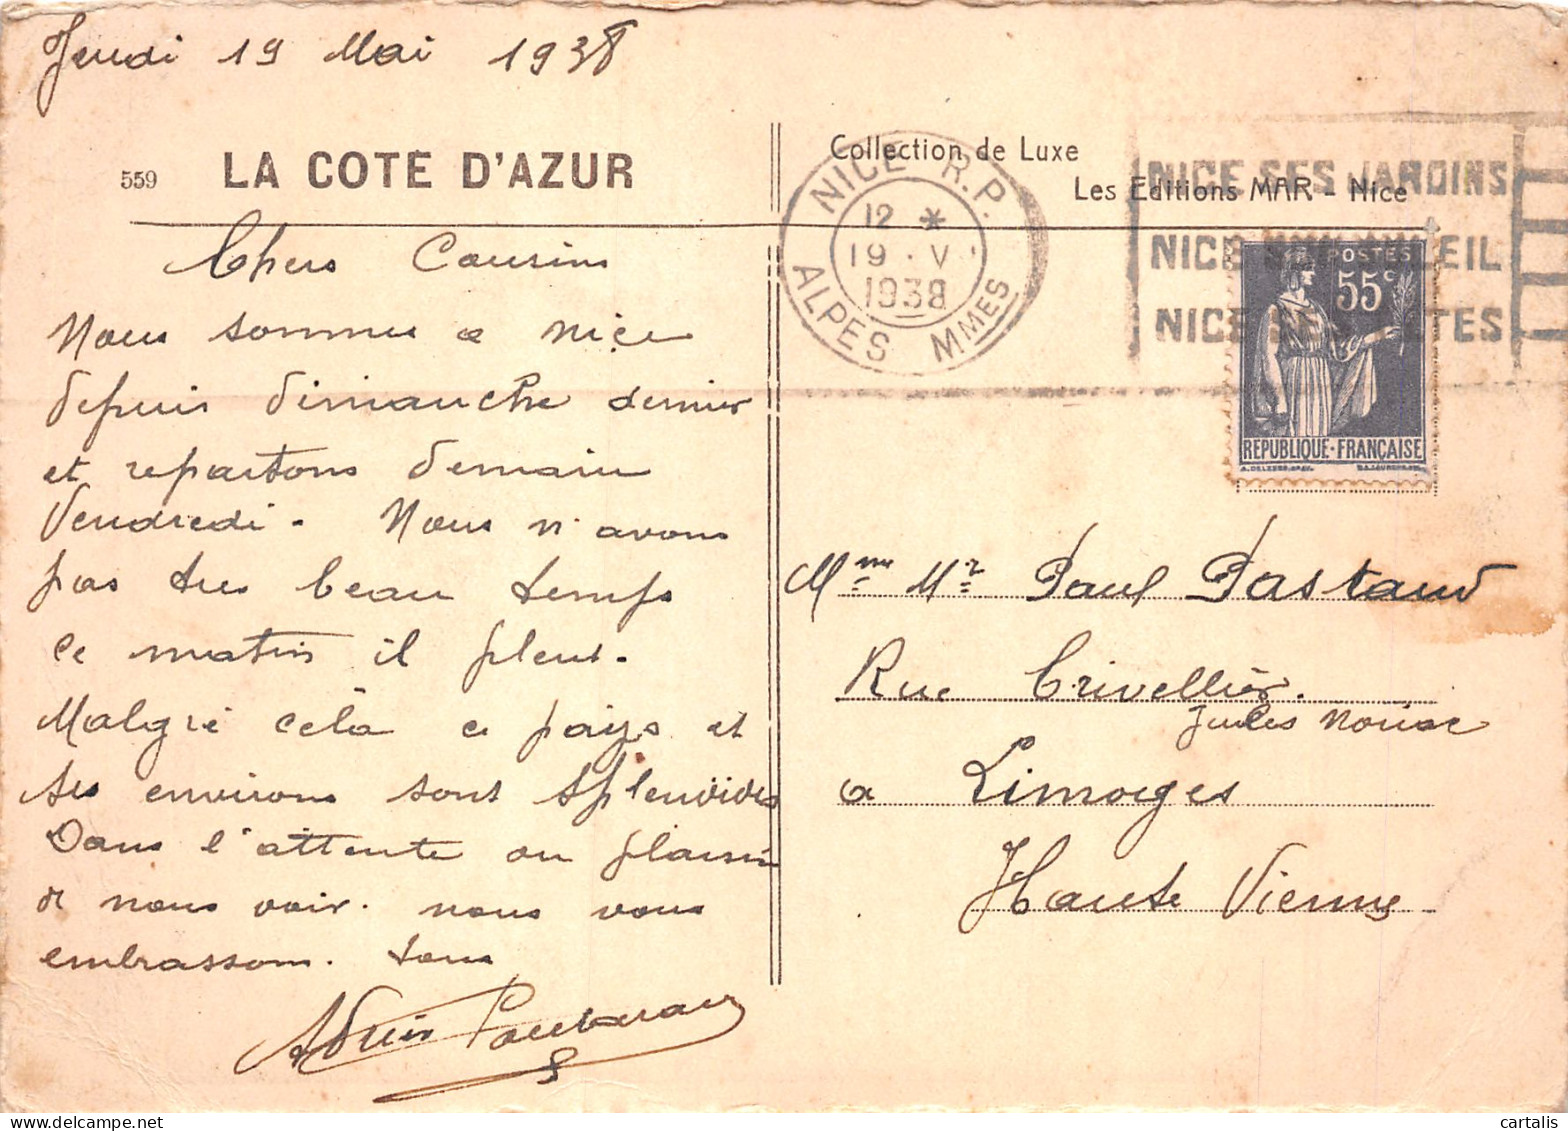 Jeudi 19 Mai 1938
559 LA COTE D'AZUR
Chers Cousins
Nous sommes a Nice
depuis dimanche dernier
et repartons demain
Vendredi. Nous n'avons
pas tres beau temps
ce matin il pleut.
Malgré cèla ce pays et
ses environs sont splendides
Dans l'attente du plaisir
de nous voir. nous vous
embrassons. tous
Collection de Luxe
Les Editions MAR - Nice
NICE R.P.
12 *
19 · V
1938
ALPES MMES
NICE SES JARDINS
NICE SON SOLEIL
NICE SES FETES
POSTES
55c
REPUBLIQUE·FRANÇAISE
Mme Mr Paul Pastaud
Rue Crivellier.
Jules Noriac
a Limoges
Haute Vienne
cartalis.com